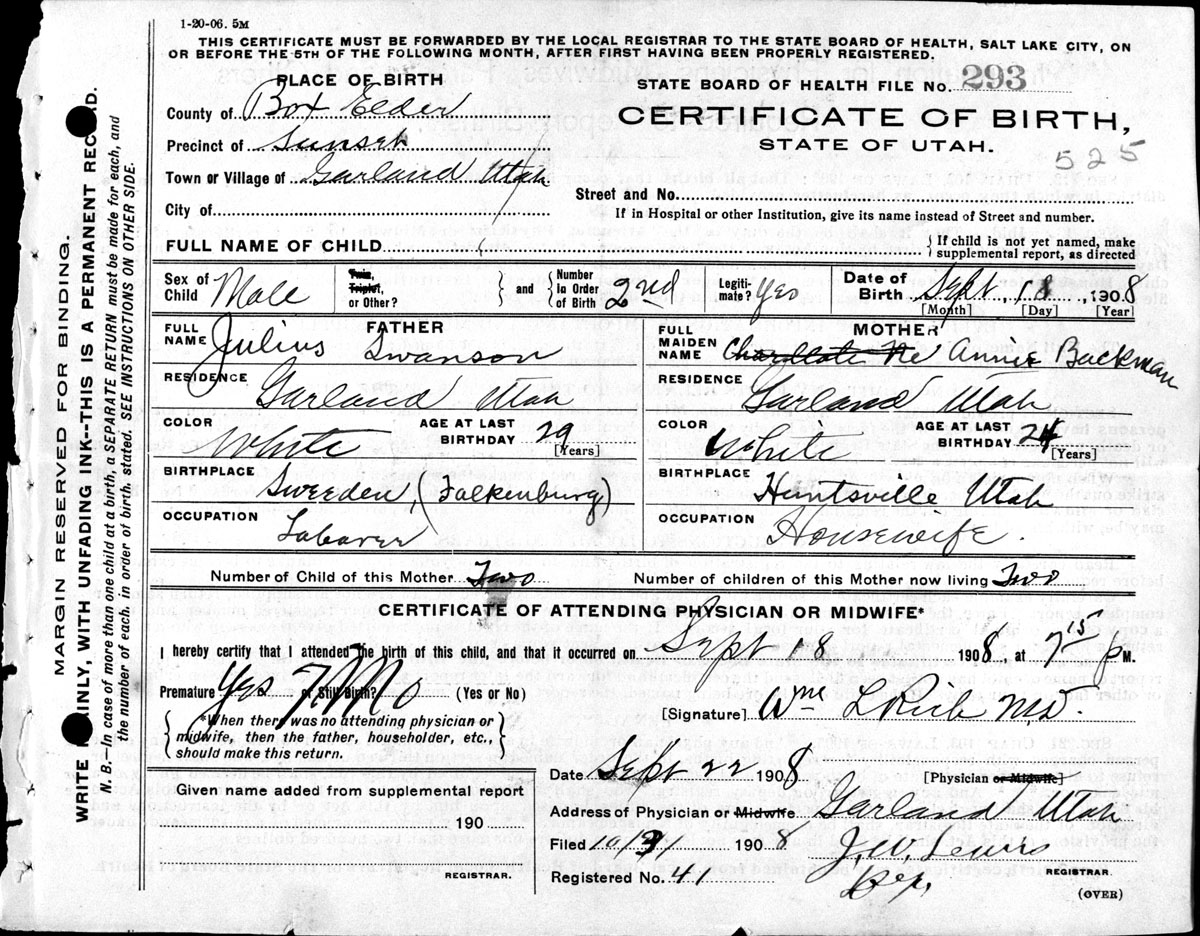 1-20-06. 5M
THIS CERTIFICATE MUST BE FORWARDED BY THE LOCAL REGISTRAR TO THE STATE BOARD OF HEALTH, SALT LAKE CITY, ON
OR BEFORE THE 5TH OF THE FOLLOWING MONTH, AFTER FIRST HAVING BEEN PROPERLY REGISTERED.
PLACE OF BIRTH
County of Box Elder
Precinct of Sunset
Town or Village of Garland Utah
City of
STATE BOARD OF HEALTH FILE NO. 293
CERTIFICATE OF BIRTH,
STATE OF UTAH.
525
Street and No.
If in Hospital or other Institution, give its name instead of Street and number.
FULL NAME OF CHILD
If child is not yet named, make
supplemental report, as directed
Sex of Child Male
Twin, Triplet, or Other?
and
Number In Order of Birth 2nd
Legitimate? Yes
Date of Birth Sept. 18, 1908
[Month] [Day] [Year]
FATHER
FULL NAME Julius Swanson
RESIDENCE Garland Utah
COLOR White
AGE AT LAST BIRTHDAY 29 [Years]
BIRTHPLACE Sweeden, (Falkenburg)
OCCUPATION Labaver
MOTHER
FULL MAIDEN NAME Charllote Ne Annie Backman
RESIDENCE Garland Utah
COLOR White
AGE AT LAST BIRTHDAY 24 [Years]
BIRTHPLACE Huntsville Utah
OCCUPATION Housewife.
Number of Child of this Mother Two
Number of children of this Mother now living Two
CERTIFICATE OF ATTENDING PHYSICIAN OR MIDWIFE*
I hereby certify that I attended the birth of this child, and that it occurred on Sept 18 1908, at 7 15 P M.
Premature Yes 7 Mo or Still Birth? (Yes or No)
*When there was no attending physician or
midwife, then the father, householder, etc.,
should make this return.
[Signature] Wm L Rich M.D.
Date Sept 22 1908
[Physician or Midwife]
Given name added from supplemental report
190
REGISTRAR.
Address of Physician or Midwife Garland Utah
Filed 1908
J. W. Lewis
REGISTRAR.
Registered No. 41
Dep.
(OVER)
MARGIN RESERVED FOR BINDING.
WRITE PLAINLY, WITH UNFADING INK--THIS IS A PERMANENT RECORD.
N. B.—In case of more than one child at a birth, a SEPARATE RETURN must be made for each, and
the number of each, in order of birth, stated. SEE INSTRUCTIONS ON OTHER SIDE.